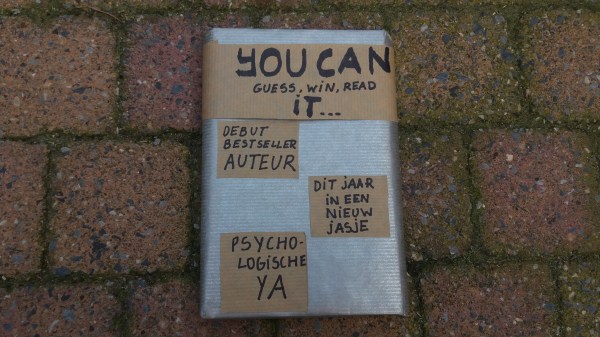 YOU CAN
GUESS, WIN, READ
iT...
DEBUT
BESTSELLER
AUTEUR
DiT JAAR
iN EEN
NiEUW
JASJE
PSYCHO-
LOGiSCHE
YA